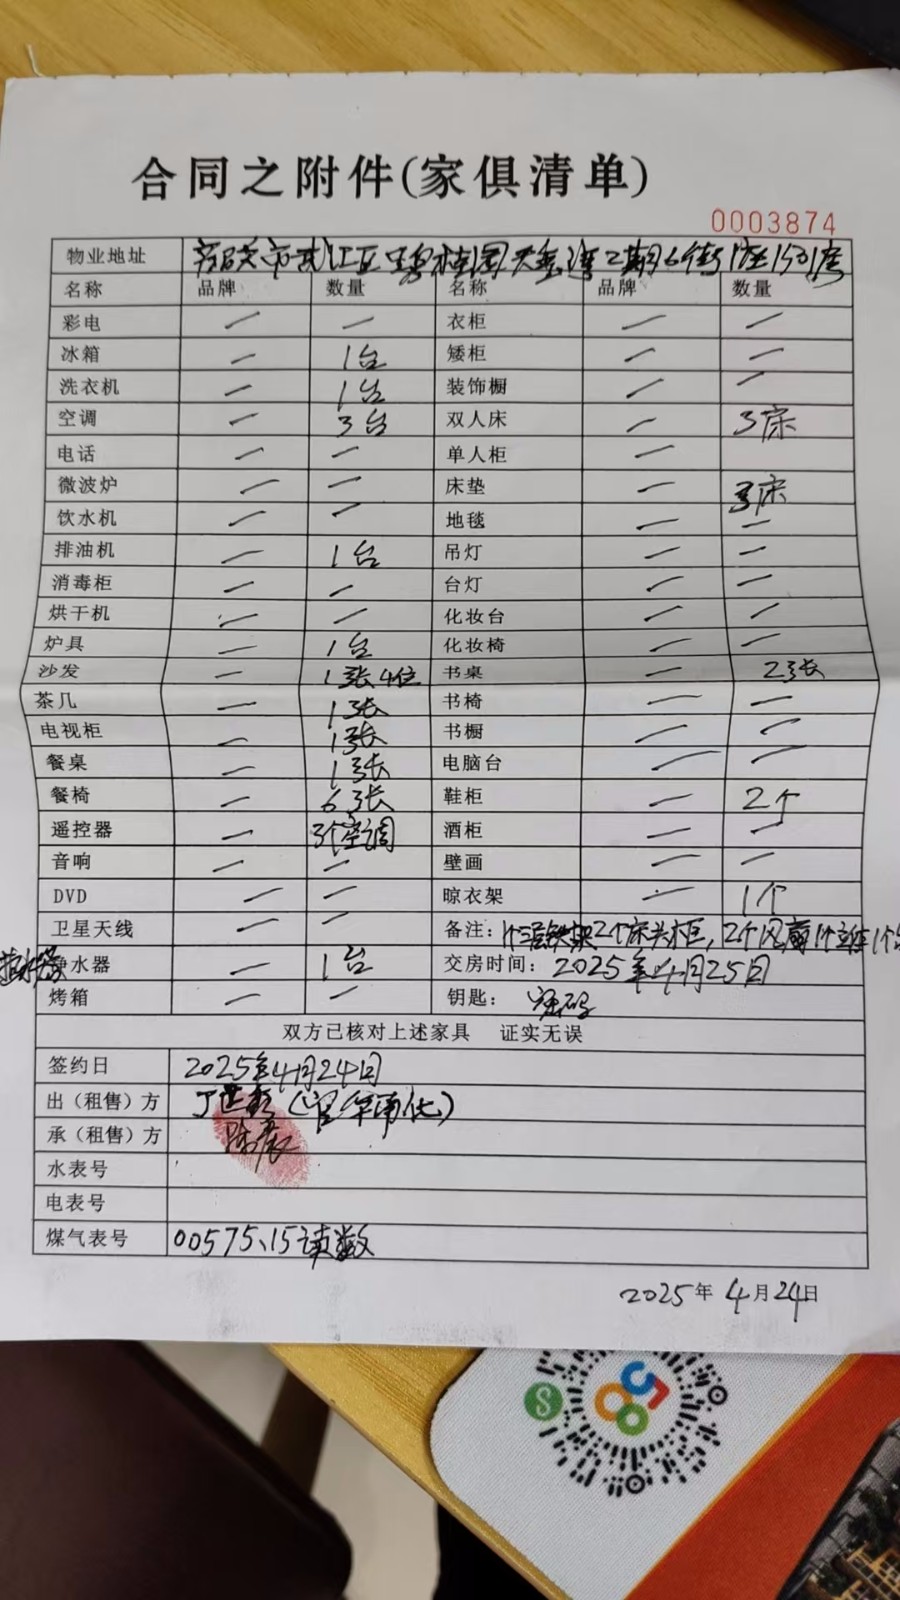 合同之附件(家俱清单)
0003874
物业地址 韶关市武江区碧桂园天玺湾2期6街1座1501房
名称 品牌 数量 名称 品牌 数量
彩电 — — 衣柜 — —
冰箱 — 1台 矮柜 — —
洗衣机 — 1台 装饰橱 — —
空调 — 3台 双人床 — 3床
电话 — — 单人柜 —
微波炉 — — 床垫 — 3床
饮水机 — — 地毯 — —
排油机 — 1台 吊灯 — —
消毒柜 — — 台灯 — —
烘干机 — — 化妆台 — —
炉具 — 1台 化妆椅 — —
沙发 — 1张4位 书桌 — 2张
茶几 — 1张 书椅 — —
电视柜 — 1张 书橱 — —
餐桌 — 1张 电脑台 — —
餐椅 — 6张 鞋柜 — 2个
遥控器 — 3个空调 酒柜 — —
音响 — — 壁画 — —
DVD — — 晾衣架 — 1个
卫星天线 — — 备注: 2个床头柜,2个风扇
净水器 — 1台 交房时间: 2025年4月25日
烤箱 — — 钥匙: 密码
双方已核对上述家具 证实无误
签约日 2025年4月24日
出(租售)方
承(租售)方
水表号
电表号
煤气表号 00575.15读数
2025年4月24日